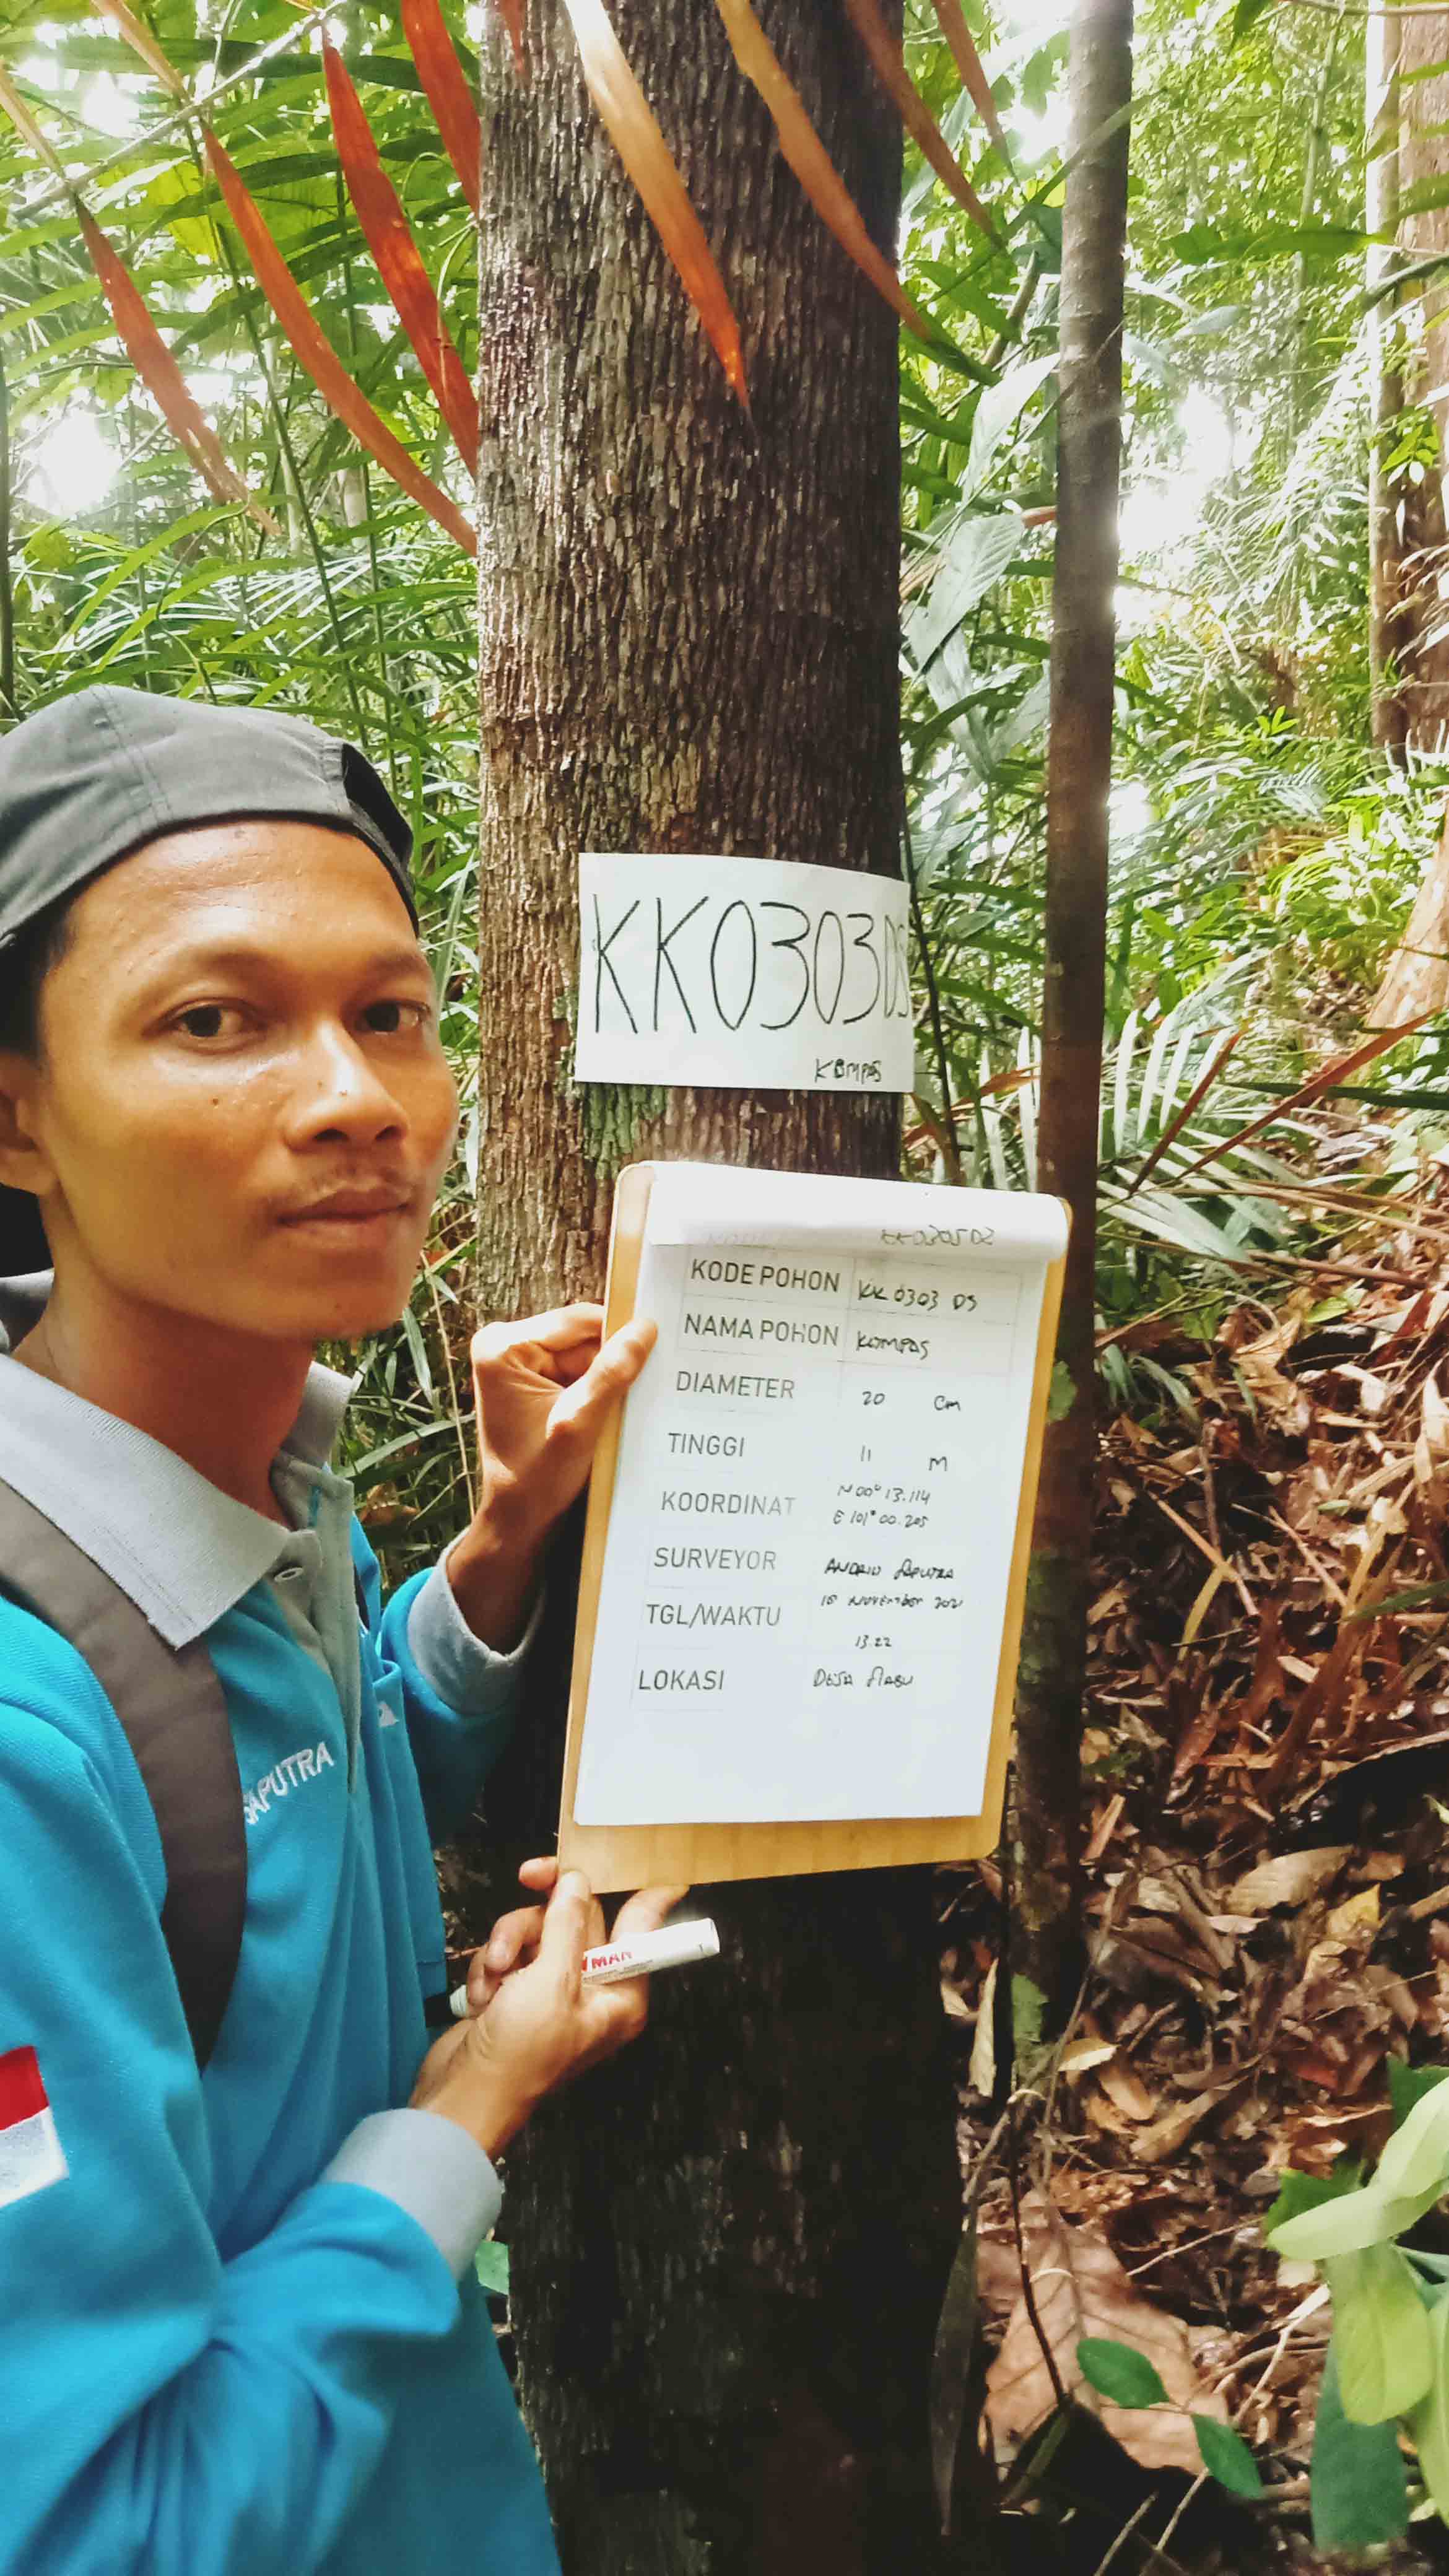 KK0303DS
KOMPAS
KK0305DS
KODE POHON KK 0303 DS
NAMA POHON KOMPAS
DIAMETER 20 Cm
TINGGI 11 M
KOORDINAT N 00° 13.114
E 101° 00.205
SURVEYOR ANDRIO SAPUTRA
TGL/WAKTU NOVEMBER 2021
13.22
LOKASI DESA
SAPUTRA
MAN